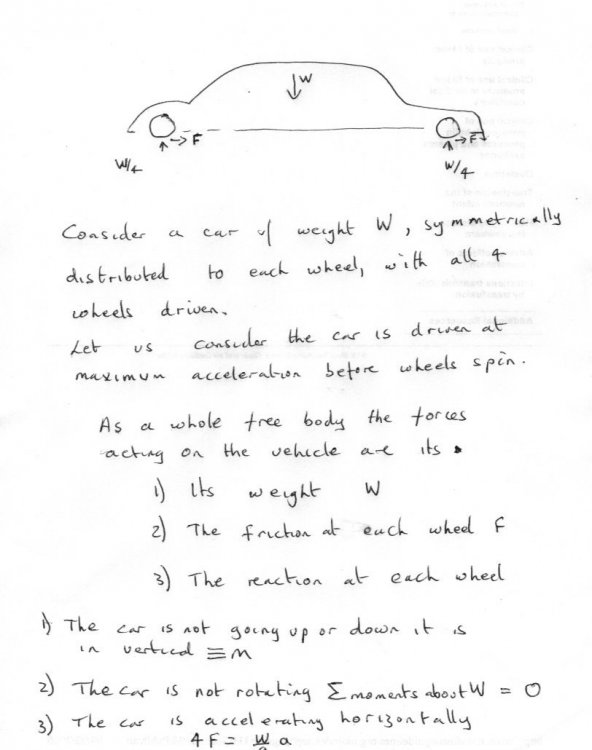 W
F
F
W/4
W/4
Consider a car of weight W, symmetrically
distributed to each wheel, with all 4
wheels driven.
Let us consider the car is driven at
maximum acceleration before wheels spin.
As a whole free body the forces
acting on the vehicle are its
1) Its weight W
2) The friction at each wheel F
3) The reaction at each wheel
1) The car is not going up or down it is
in vertical ≡m
2) The car is not rotating Σ moments about W = 0
3) The car is accelerating horizontally
4F = W a